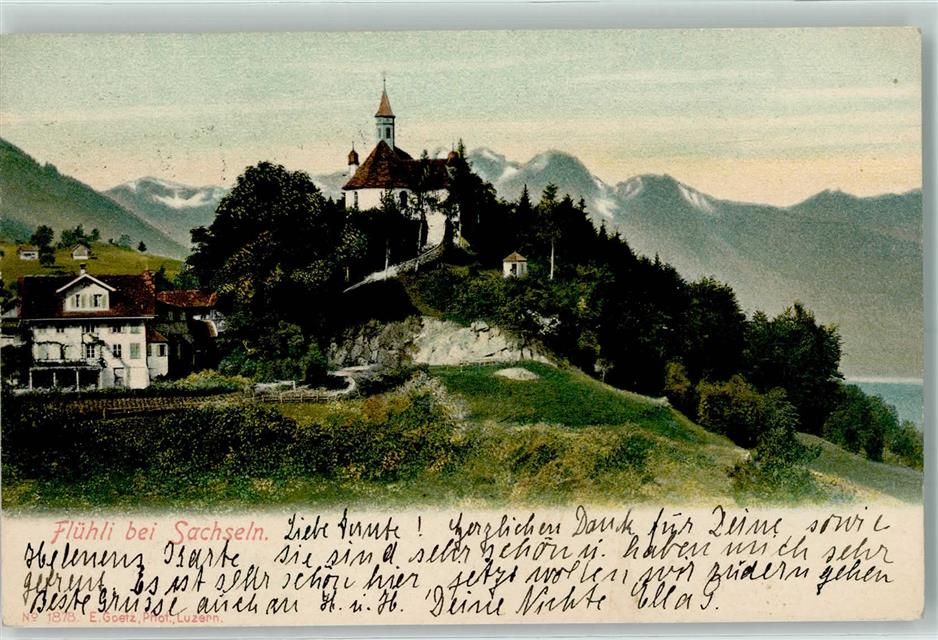 Flühli bei Sachseln. Liebe Tante! Herzlichen Dank für Deine, sowie
Helenens Karte sie sind sehr schön u. haben mich sehr
gefreut. Es ist sehr schön hier, jetzt wollen wir rudern gehen
Beste Grüsse auch an H. u. H. Deine Nichte Ella S.
No 1878. E. Goetz, Phot., Luzern.